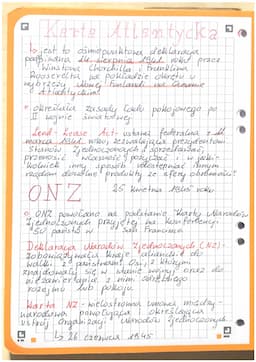 Karta Atlantycka
↳ jest to ośmiopunktowa deklaracja
podpisana 14 sierpnia 1941 roku przez
Winstona Churchilla i Franklina
Roosevelta na pokładzie okrętu u
wybrzeży Nowej Funlandii na Oceanie
Atlantyckim!
• określała zasady ładu pokojowego po
II wojnie światowej
Lend-Lease Act - ustawa federalna z 11
marca 1941 roku zezwalająca prezydentowi
Stanów Zjednoczonych „sprzedawać,
przenosić własność, pożyczać i w jakikolwiek
inny sposób udostępniać innym
rządom dowolne produkty ze sfery obronności"
ONZ 25 kwietnia 1945 roku
• ONZ powołano na podstawie Karty Narodów
Zjednoczonych przyjętej na konferencji
50 państw w San Francisco
Deklaracja Narodów Zjednoczonych (NZ) -
zobowiązywała kraje alianckie do
walki z państwami Osi, z którymi
znajdowały się w stanie wojny oraz do
niezawierania z nimi odrębnego
rozejmu lub pokoju.
Karta NZ - wielostronna umowa między-
narodowa powołująca i określająca
ustrój Organizacji Narodów Zjednoczonych
↳ 26 czerwca 1945